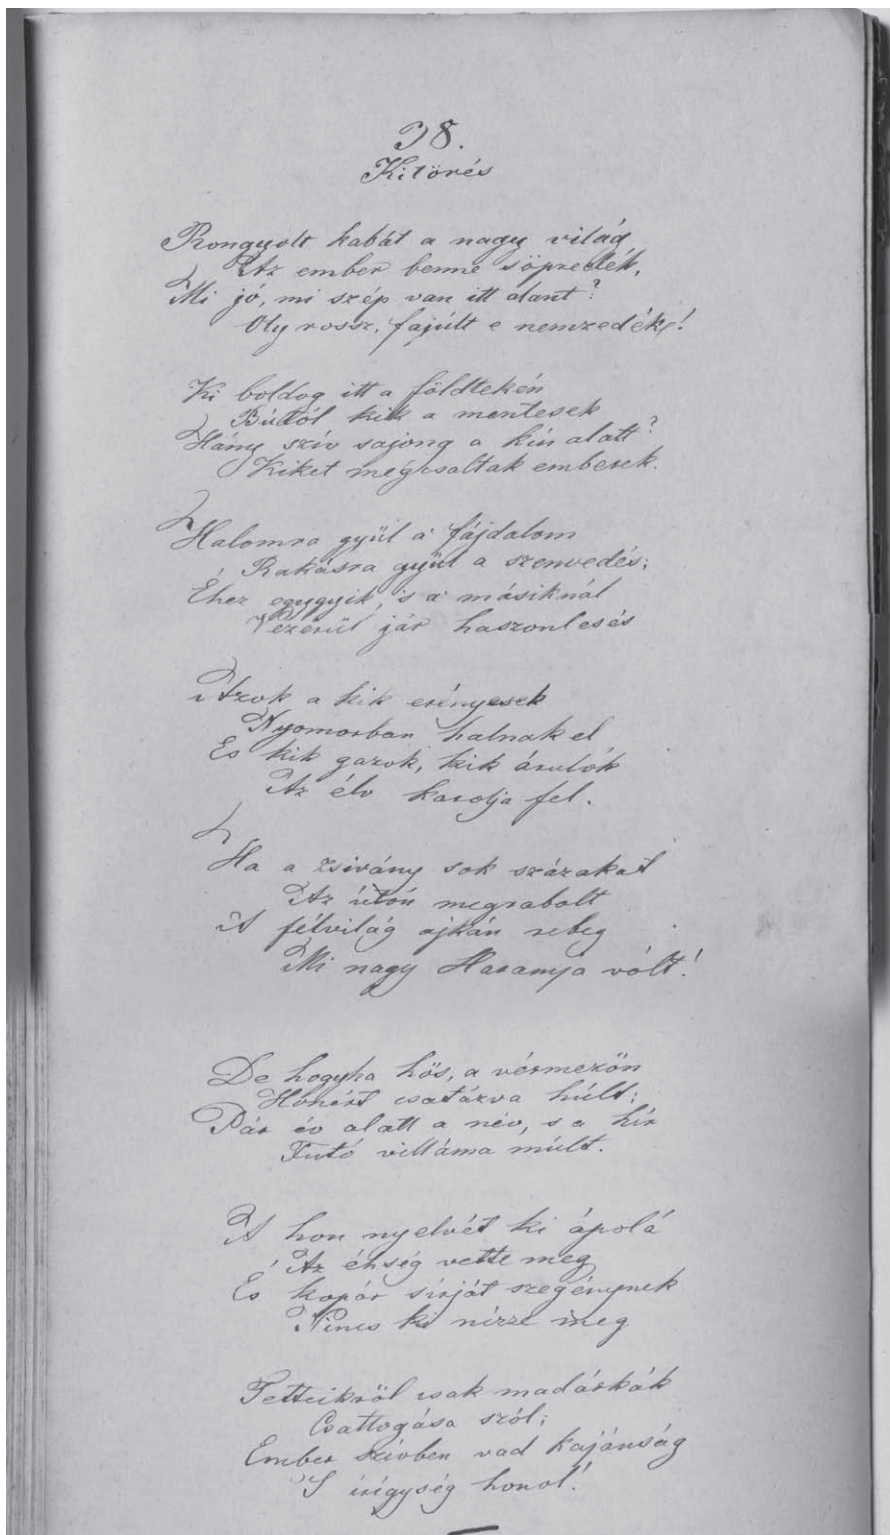 38.
Kitörés
Rongyolt kabát a nagy világ
Az ember benne söpredék,
Mi jó, mi szép van itt alant?
Oly rossz, fajúlt e nemzedék!
Ki boldog itt a földtekén
Bútól kik a mentesek
Hány szív sajong a kín alatt?
Kiket megcsaltak emberek.
Halomra gyül a fájdalom
Rakásra gyül a szenvedés;
Éhez egygyik, 's a másiknál
Vezérül jár haszonlesés
Azok a kik erényesek
Nyomorban halnak el
És kik gazok, kik árulók
Az élv karolja fel.
Ha a zsivány sok százakat
Az úton megrabolt
A félvilág ajkán rebeg
Mi nagy Haramja vólt!
De hogyha hös, a vérmezön
Honért csatázva húlt;
Pár év alatt a név, s a hír
Futó villáma múlt.
A hon nyelvét ki ápolá
Az éhség vette meg
És kopár sírját szegénynek
Nincs ki nézze meg
Tetteikröl csak madárkák
Csattogása szól;
Ember szívben vad kajánság
S írígység honol!